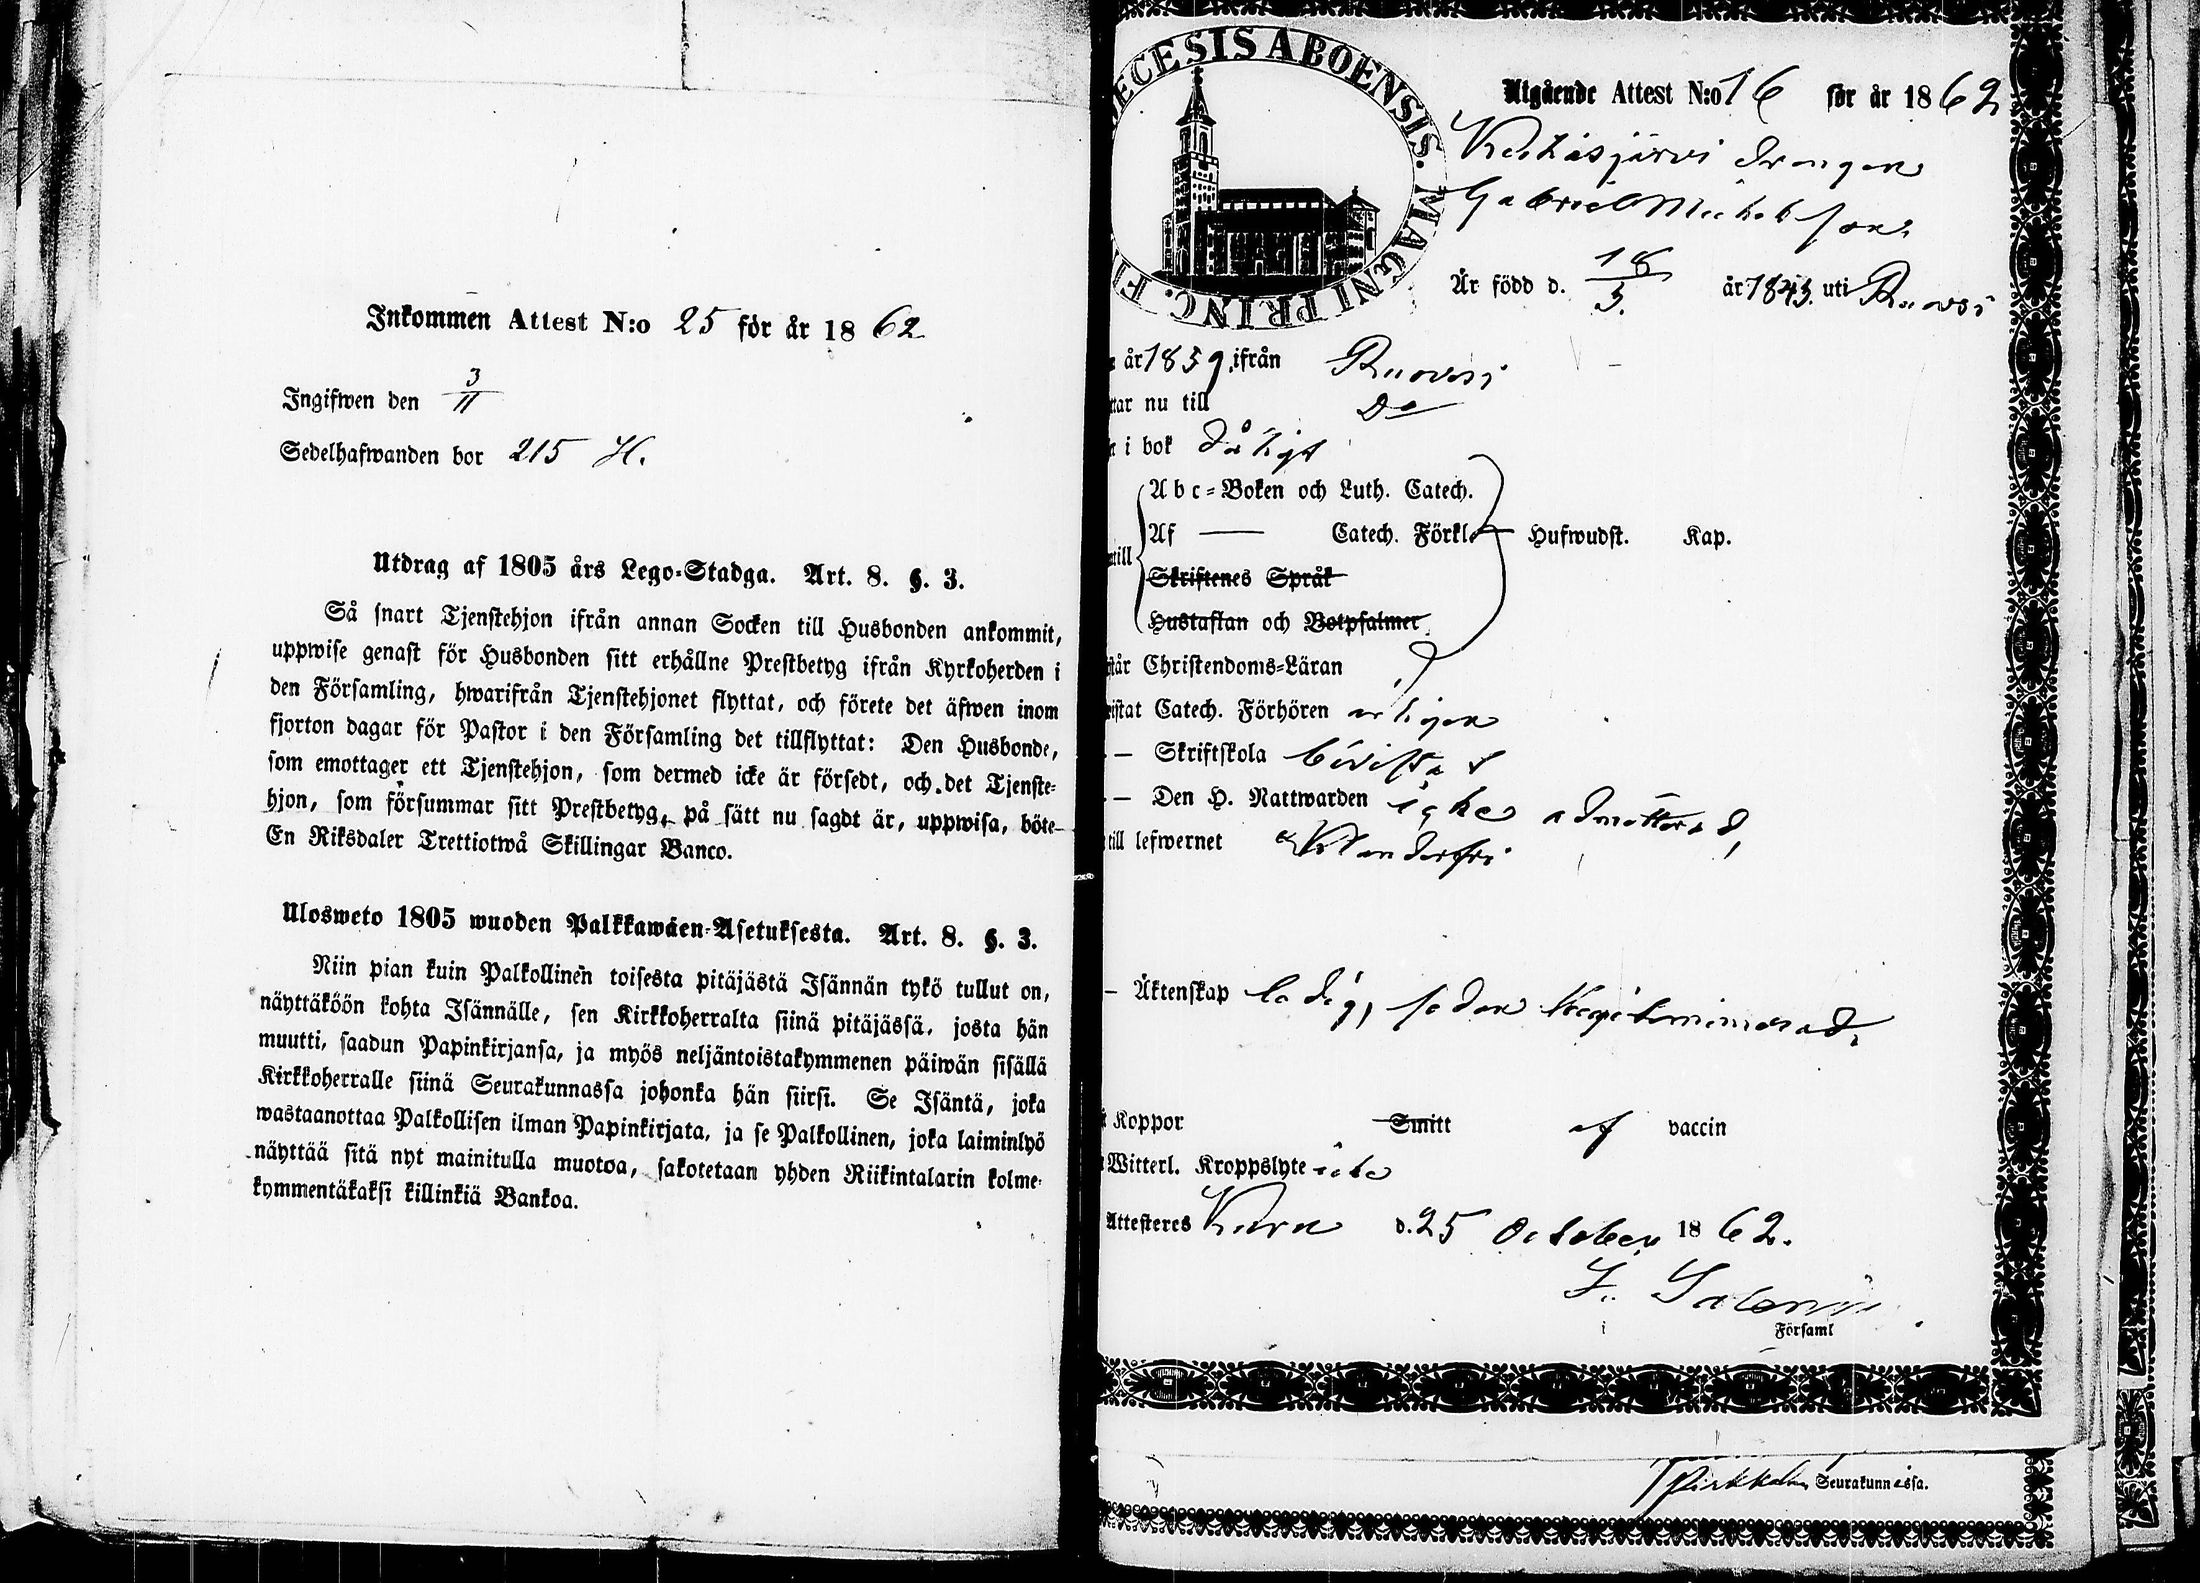 Inkommen Attest N:o 25 för år 1862
Ingifwen den 3/11
Sedelhafwanden bor 215 H.
Utdrag af 1805 års Lego-Stadga. Art. 8. §. 3.
Så snart Tjenstehjon ifrån annan Socken till Husbonden ankommit,
uppwise genast för Husbonden sitt erhållne Prestbetyg ifrån Kyrkoherden i
den Församling, hwarifrån Tjenstehjonet flyttat, och förete det äfwen inom
fjorton dagar för Pastor i den Församling det tillflyttat: Den Husbonde,
som emottager ett Tjenstehjon, som dermed icke är försedt, och det Tjenste-
hjon, som försummar sitt Prestbetyg, på sätt nu sagdt är, uppwisa, böte
En Riksdaler Trettiotwå Skillingar Banco.
Ulosweto 1805 wuoden Palkkawäen-Asetuksesta. Art. 8. §. 3.
Niin pian kuin Palkollinen toisesta pitäjästä Isännän tykö tullut on,
näyttäköön kohta Isännälle, sen Kirkkoherralta siinä pitäjässä, josta hän
muutti, saadun Papinkirjansa, ja myös neljäntoistakymmenen päiwän sisällä
Kirkkoherralle siinä Seurakunnassa johonka hän siirsi. Se Isäntä, joka
wastaanottaa Palkollisen ilman Papinkirjata, ja se Palkollinen, joka laiminlyö
näyttää sitä nyt mainitulla muotoa, sakotetaan yhden Riikintalarin kolme-
kymmentäkaksi killinkiä Bankoa.
ECESIS ABOENSIS. MAGNI PRINC. F
Utgående Attest N:o 16 för år 1862
drängen
Gabriel Michelsson
Är född d. 18/3. år 1843. uti Ruovesi
år 1859, ifrån Ruovesi
nu till Do
i bok dåligt
till
Abc-Boken och Luth. Catech.
Af — Catech. Förkl. Hufwudst. Kap.
Skriftenes Språk
Hustaflan och Botpsalmer
står Christendoms-Läran
istat Catech. Förhören årligen
— Skriftskola bivistat
— Den H. Nattwarden icke admitterad,
till lefwernet oklanderfri
— Äktenskap ledig, sedan
Koppor Smitt af vaccin
Witterl. Kroppslyte icke
Attesteres Kuru d. 25 October 1862.
i Församl
Pirkkala Seurakunnassa.